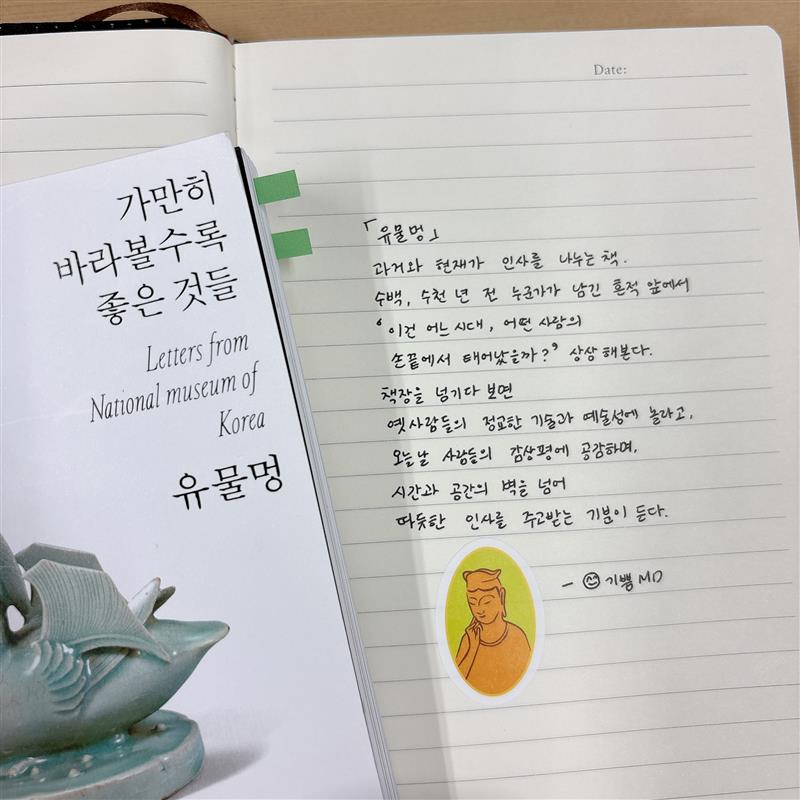 가만히
바라볼수록
좋은 것들
Letters from
National museum of
Korea
유물멍
Date:
「유물멍」
과거와 현재가 인사를 나누는 책.
수백, 수천 년 전 누군가가 남긴 흔적 앞에서
‘이건 어느 시대, 어떤 사람의
손끝에서 태어났을까?’ 상상해본다.
책장을 넘기다 보면
옛사람들의 정교한 기술과 예술성에 놀라고,
오늘날 사람들의 감상평에 공감하며,
시간과 공간의 벽을 넘어
따듯한 인사를 주고받는 기분이 든다.
- 😊 기쁨 MD